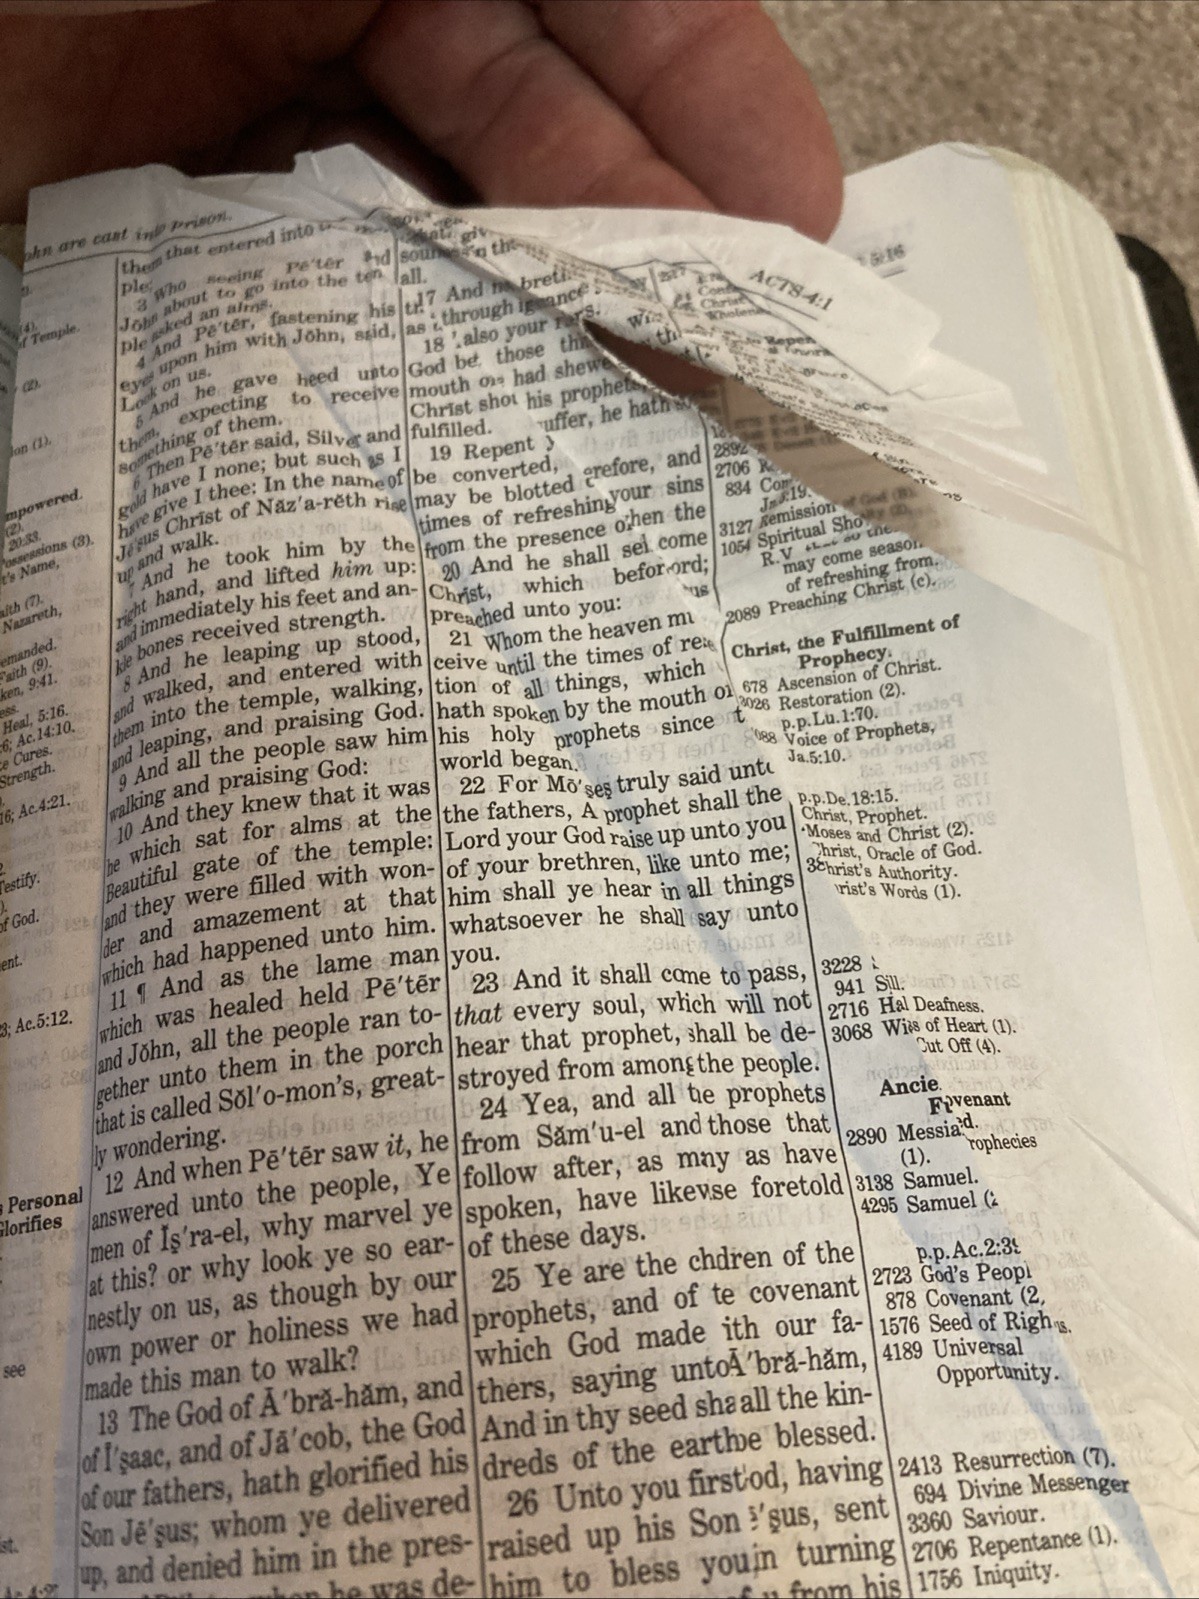 ohn are cast into Prison.
f Temple.
(2).
ion (1).
mpowered.
(2).
20:33.
ossessions (3).
t's Name,
aith (7).
Nazareth,
emanded.
Faith (9).
ken, 9:41.
ess.
Heal, 5:16.
6; Ac.14:10.
e Cures.
Strength.
16; Ac.4:21.
Testify.
of God.
ent.
3; Ac.5:12.
s Personal
Glorifies
see
ist.
them that entered into
ple;
3 Who seeing Pē'tēr and
Jŏhn about to go into the tem
ple asked an alms.
4 And Pē'tēr, fastening his
eyes upon him with Jŏhn, said,
Look on us.
5 And he gave heed unto
them, expecting to receive
something of them.
6 Then Pē'tēr said, Silver and
gold have I none; but such as I
have give I thee: In the name of
Jē'ṣus Chrīst of Năz'a-rĕth rise
up and walk.
7 And he took him by the
right hand, and lifted him up:
and immediately his feet and an-
kle bones received strength.
8 And he leaping up stood,
and walked, and entered with
them into the temple, walking,
and leaping, and praising God.
9 And all the people saw him
walking and praising God:
10 And they knew that it was
he which sat for alms at the
Beautiful gate of the temple:
and they were filled with won-
der and amazement at that
which had happened unto him.
11 ¶ And as the lame man
which was healed held Pē'tēr
and Jŏhn, all the people ran to-
gether unto them in the porch
that is called Sŏl'o-mon's, great-
ly wondering.
12 And when Pē'tēr saw it, he
answered unto the people, Ye
men of Ĭṣ'ra-el, why marvel ye
at this? or why look ye so ear-
nestly on us, as though by our
own power or holiness we had
made this man to walk?
13 The God of Ā'bră-hăm, and
of Ī'ṣaac, and of Jā'cob, the God
of our fathers, hath glorified his
Son Jē'ṣus; whom ye delivered
up, and denied him in the pres-
he was de-
giv
soun in the
all.
17 And n breth
as through ig ance
18 also your r rs.
God be those th
mouth o had shewe
Chrīst shou his prophets
fulfilled. uffer, he hath so
19 Repent y
be converted, erefore, and
may be blotted your sins
times of refreshing hen the
from the presence o come
20 And he shall sen ord;
Chrīst, which before us
preached unto you:
21 Whom the heaven mu
ceive until the times of re
tion of all things, which
hath spoken by the mouth of
his holy prophets since t
world began.
22 For Mō'ṣeṣ truly said unto
the fathers, A prophet shall the
Lord your God raise up unto you
of your brethren, like unto me;
him shall ye hear in all things
whatsoever he shall say unto
you.
23 And it shall come to pass,
that every soul, which will not
hear that prophet, shall be de-
stroyed from among the people.
24 Yea, and all the prophets
from Săm'u-el and those that
follow after, as many as have
spoken, have likewse foretold
of these days.
25 Ye are the chdren of the
prophets, and of te covenant
which God made ith our fa-
thers, saying unto Ā'bră-hăm,
And in thy seed sha all the kin-
dreds of the earth be blessed.
26 Unto you first od, having
raised up his Son ē'ṣus, sent
him to bless you in turning
from his
ACTS 4:1
5:16
2892
2706 R
834 Con
Ja.5:19.
3127 Remission of God (B).
1054 Spiritual Sho
R.V. the
may come season
of refreshing from.
2089 Preaching Christ (c).
Christ, the Fulfillment of
Prophecy.
678 Ascension of Christ.
3026 Restoration (2).
p.p.Lu.1:70.
088 Voice of Prophets,
Ja.5:10.
p.p.De.18:15.
Christ, Prophet.
Moses and Christ (2).
Christ, Oracle of God.
Christ's Authority.
rist's Words (1).
3228
941
2716 Deafness.
3068 of Heart (1).
Cut Off (4).
Ancie
venant
2890 Messia rophecies
(1).
3138 Samuel.
4295 Samuel (2
p.p.Ac.2:39
2723 God's Peopl
878 Covenant (2,
1576 Seed of Righ s.
4189 Universal
Opportunity.
2413 Resurrection (7).
694 Divine Messenger
3360 Saviour.
2706 Repentance (1).
1756 Iniquity.